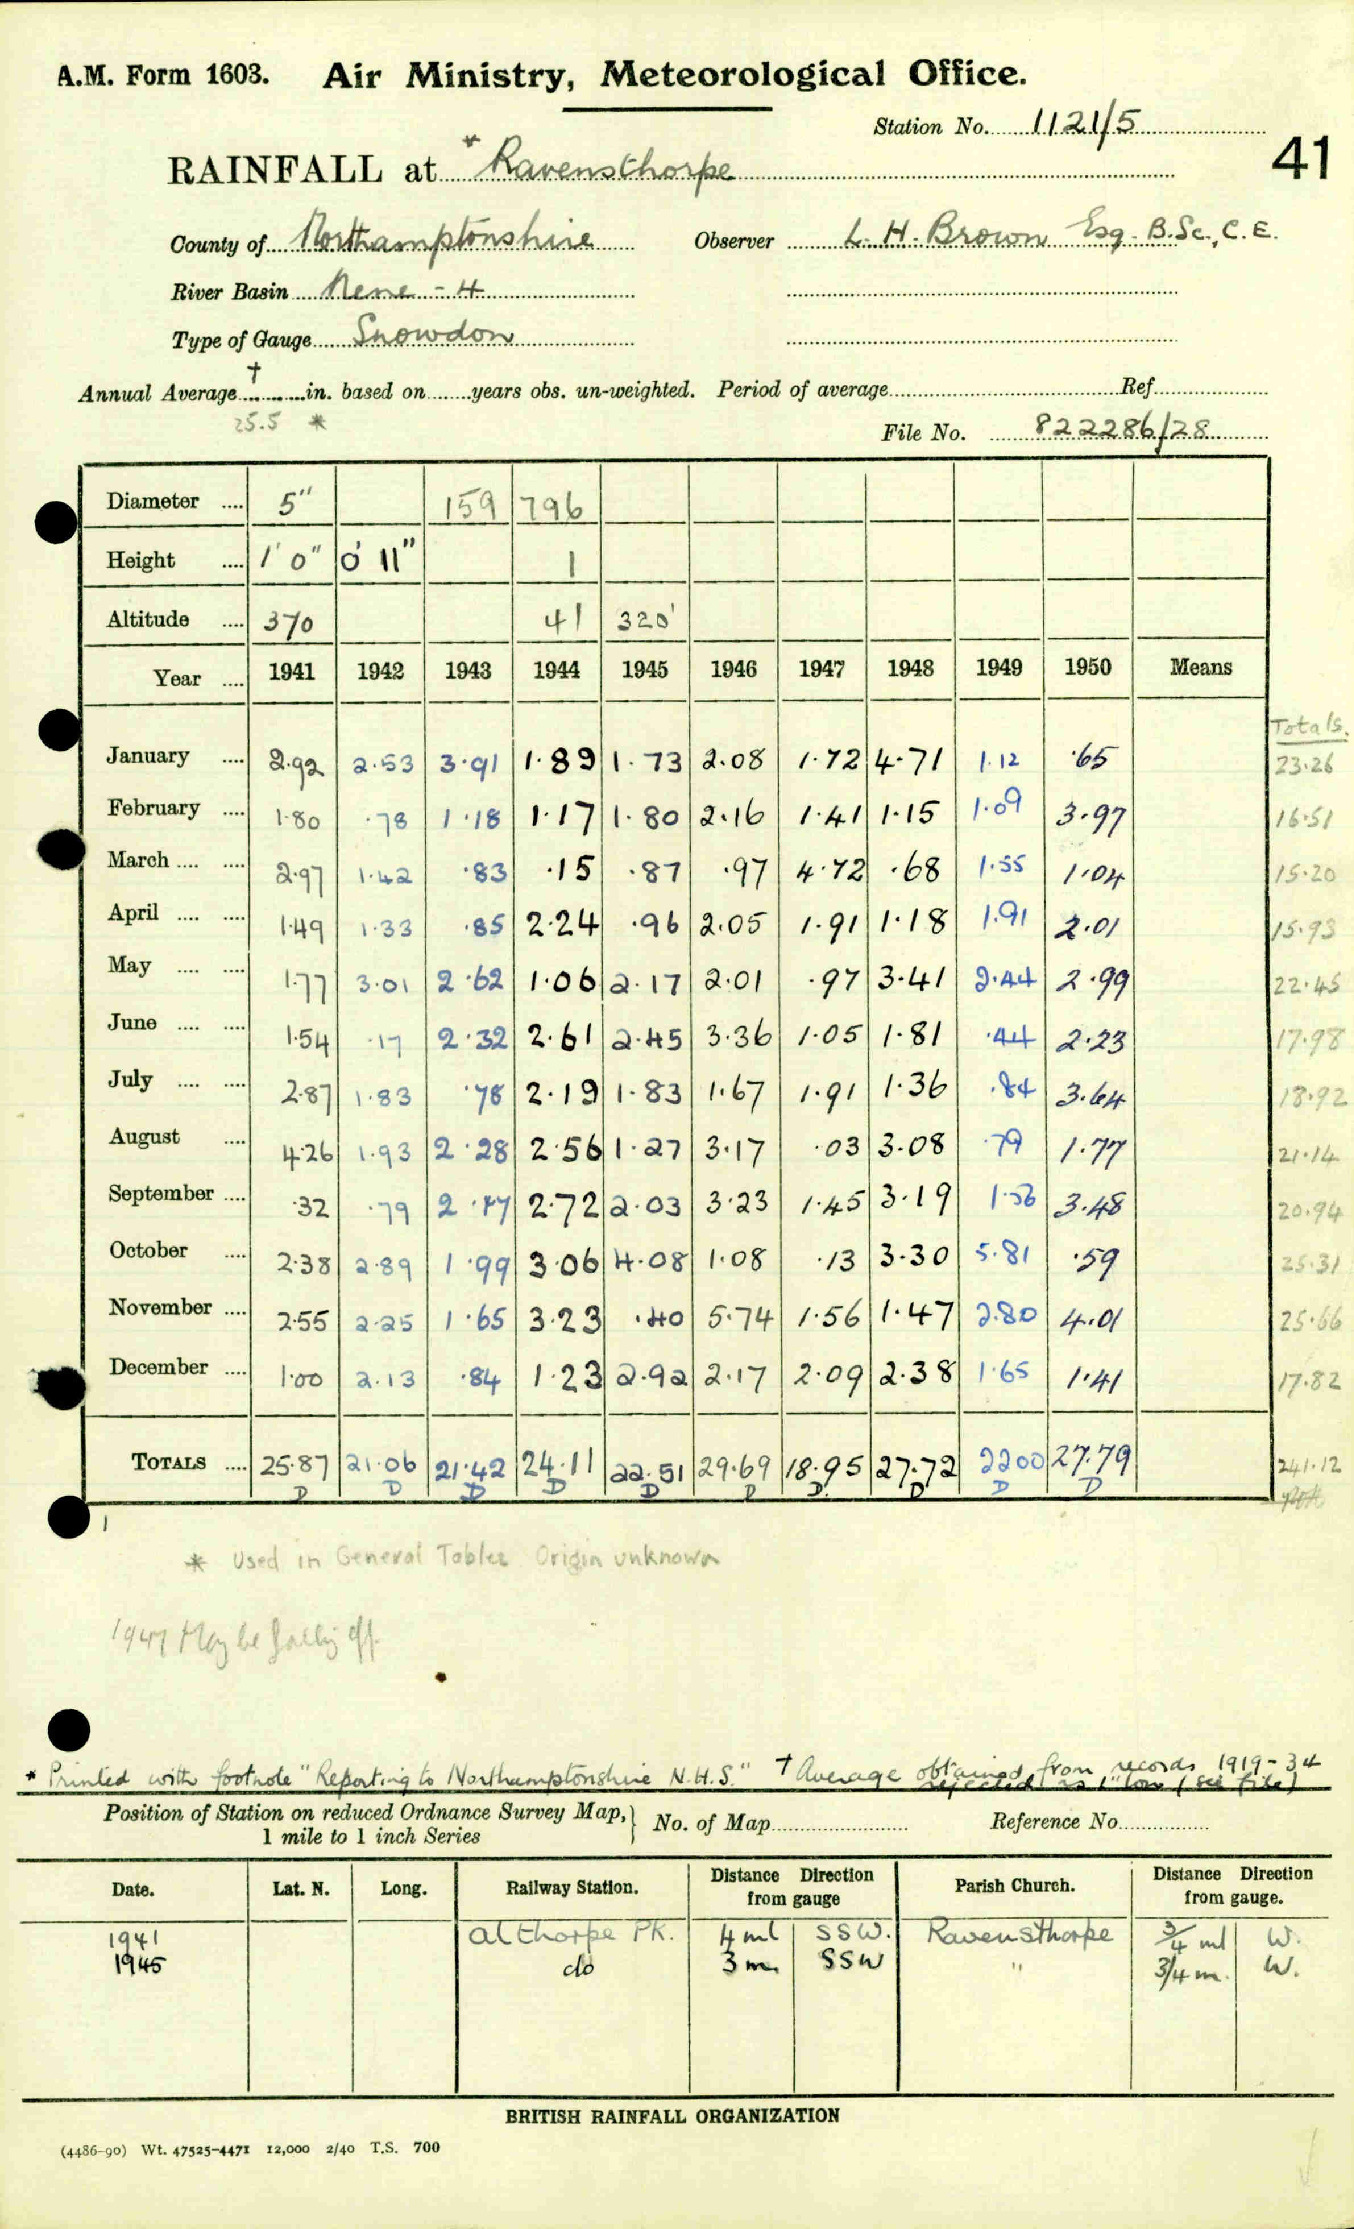 A.M. Form 1603. Air Ministry, Meteorological Office.
Station No. 1121/5
41
RAINFALL at * Ravensthorpe
County of Northamptonshire Observer L. H. Brown Esq. B.Sc., C.E.
River Basin Nene - 4
Type of Gauge Snowdon
Annual Average † in. based on years obs. un-weighted. Period of average Ref
25.5 *
File No. 822286/28
Diameter 5" 159 796
Height 1' 0" 0' 11" 1
Altitude 370 41 320'
Year 1941 1942 1943 1944 1945 1946 1947 1948 1949 1950 Means
Totals.
January 2.92 2.53 3.91 1.89 1.73 2.08 1.72 4.71 1.12 .65 23.26
February 1.80 .78 1.18 1.17 1.80 2.16 1.41 1.15 1.09 3.97 16.51
March 2.97 1.42 .83 .15 .87 .97 4.72 .68 1.55 1.04 15.20
April 1.49 1.33 .85 2.24 .96 2.05 1.91 1.18 1.91 2.01 15.93
May 1.77 3.01 2.62 1.06 2.17 2.01 .97 3.41 2.44 2.99 22.45
June 1.54 .17 2.32 2.61 2.45 3.36 1.05 1.81 .44 2.23 17.98
July 2.87 1.83 .78 2.19 1.83 1.67 1.91 1.36 .84 3.64 18.92
August 4.26 1.93 2.28 2.56 1.27 3.17 .03 3.08 .79 1.77 21.14
September .32 .79 2.17 2.72 2.03 3.23 1.45 3.19 1.56 3.48 20.94
October 2.38 2.89 1.99 3.06 4.08 1.08 .13 3.30 5.81 .59 25.31
November 2.55 2.25 1.65 3.23 .40 5.74 1.56 1.47 2.80 4.01 25.66
December 1.00 2.13 .84 1.23 2.92 2.17 2.09 2.38 1.65 1.41 17.82
TOTALS 25.87 21.06 21.42 24.11 22.51 29.69 18.95 27.72 2200 27.79 241.12
D D D D D D D D D D
* Used in General Tables Origin unknown
1947 May be falling off.
* Printed with footnote "Reporting to Northamptonshire N.H.S." † Average obtained from records 1919-34
rejected as 1" low (see file)
Position of Station on reduced Ordnance Survey Map, 1 mile to 1 inch Series } No. of Map Reference No.
Date. Lat. N. Long. Railway Station. Distance Direction from gauge Parish Church. Distance Direction from gauge.
1941 Althorpe PK. 4 ml SSW. Ravensthorpe 3/4 ml W.
1945 do 3 m. SSW " 3/4 m. W.
BRITISH RAINFALL ORGANIZATION
(4486-90) Wt. 47525-4471 12,000 2/40 T.S. 700